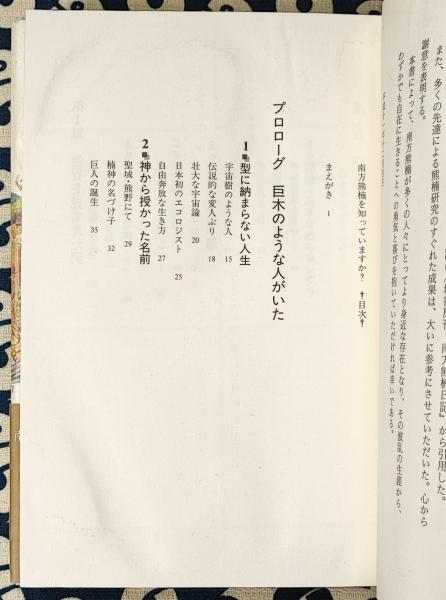 また、多くの先達による熊楠研究のすぐれた成果は、大いに参考にさせていただいた。心から
謝意を表明する。
本書によって、南方熊楠が多くの人々にとってより身近な存在となり、その波乱の生涯から、
わずかでも自在に生きることへの勇気と喜びを抱いていただければ幸いである。
南方熊楠を知っていますか? †目次†
まえがき 1
プロローグ 巨木のような人がいた
1 型に納まらない人生
宇宙樹のような人 15
伝説的な変人ぶり 18
壮大な宇宙論 20
日本初のエコロジスト 25
自由奔放な生き方 27
2 神から授かった名前
聖域・熊野にて 29
楠神の名づけ子 32
巨人の誕生 35